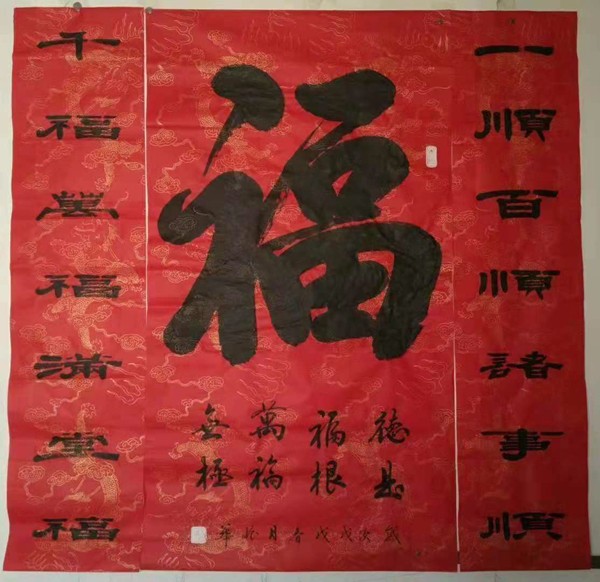 一順百順諸事順
福
德是
福根
萬福
無極
歲次戊戌春月
千福萬福滿堂福